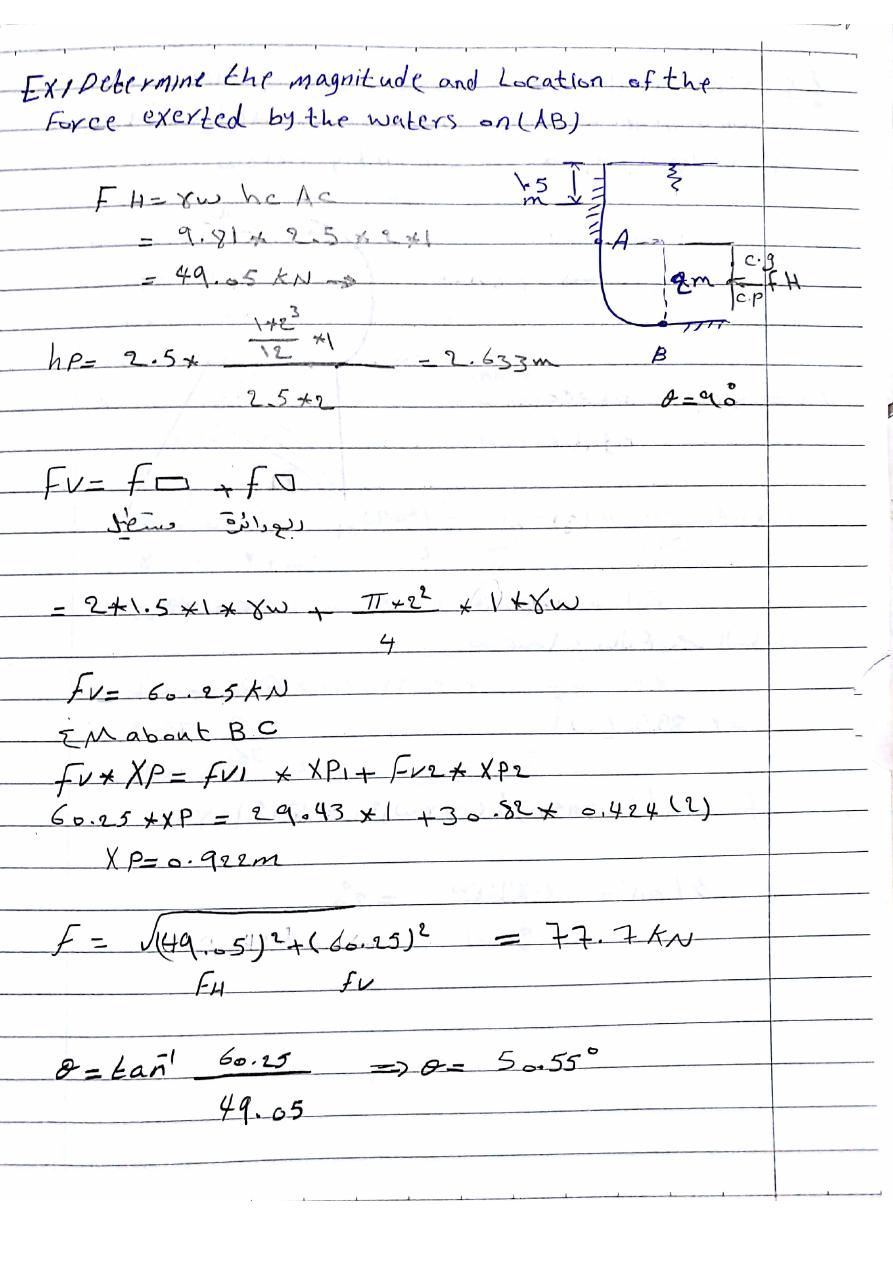 EX/ Determine the magnitude and Location of the
Force exerted by the waters on (AB)
1.5
m
FH = γw hc Ac
= 9.81 * 2.5 * 2 * 1
= 49.05 KN →
A
c.g
2m
FH
c.p
B
θ = 90°
hp = 2.5 * (1*2³/12 *1) / (2.5 *2) = 2.633m
FV = f▭ + f
مستطيل ربع دائرة
= 2*1.5*1*γw + π*2²/4 * 1*γw
FV = 60.25 KN
ΣM about BC
FV * XP = FV1 * XP1 + FV2 * XP2
60.25 * XP = 29.43 *1 + 30.82 * 0.424 (2)
XP = 0.922m
F = √(49.05)² + (60.25)² = 77.7 KN
FH FV
θ = tan⁻¹ 60.25/49.05 => θ = 50.55°